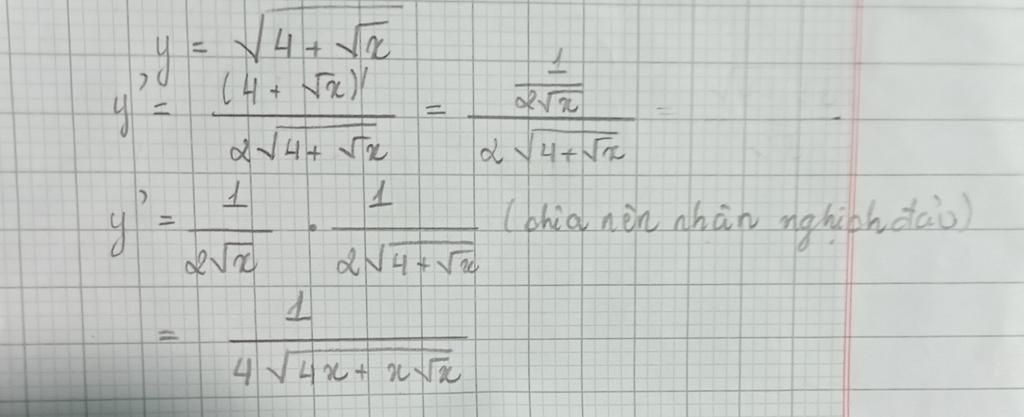 y = √(4 + √x)
y' = (4 + √x)' / (2√(4 + √x)) = (1 / (2√x)) / (2√(4 + √x)) =
y' = 1 / (2√x) . 1 / (2√(4 + √x)) (chia nên nhân nghịch đảo)
= 1 / (4√(4x + x√x))